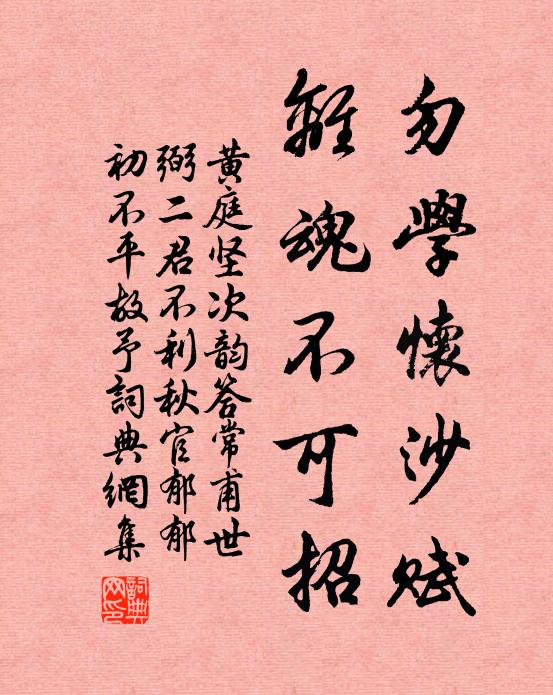 勿學懷沙賦
離魂不可招
黄庭坚次韵答常甫世
弼二君不利秋官郁郁
初不平故予詞典網集
詞典网印